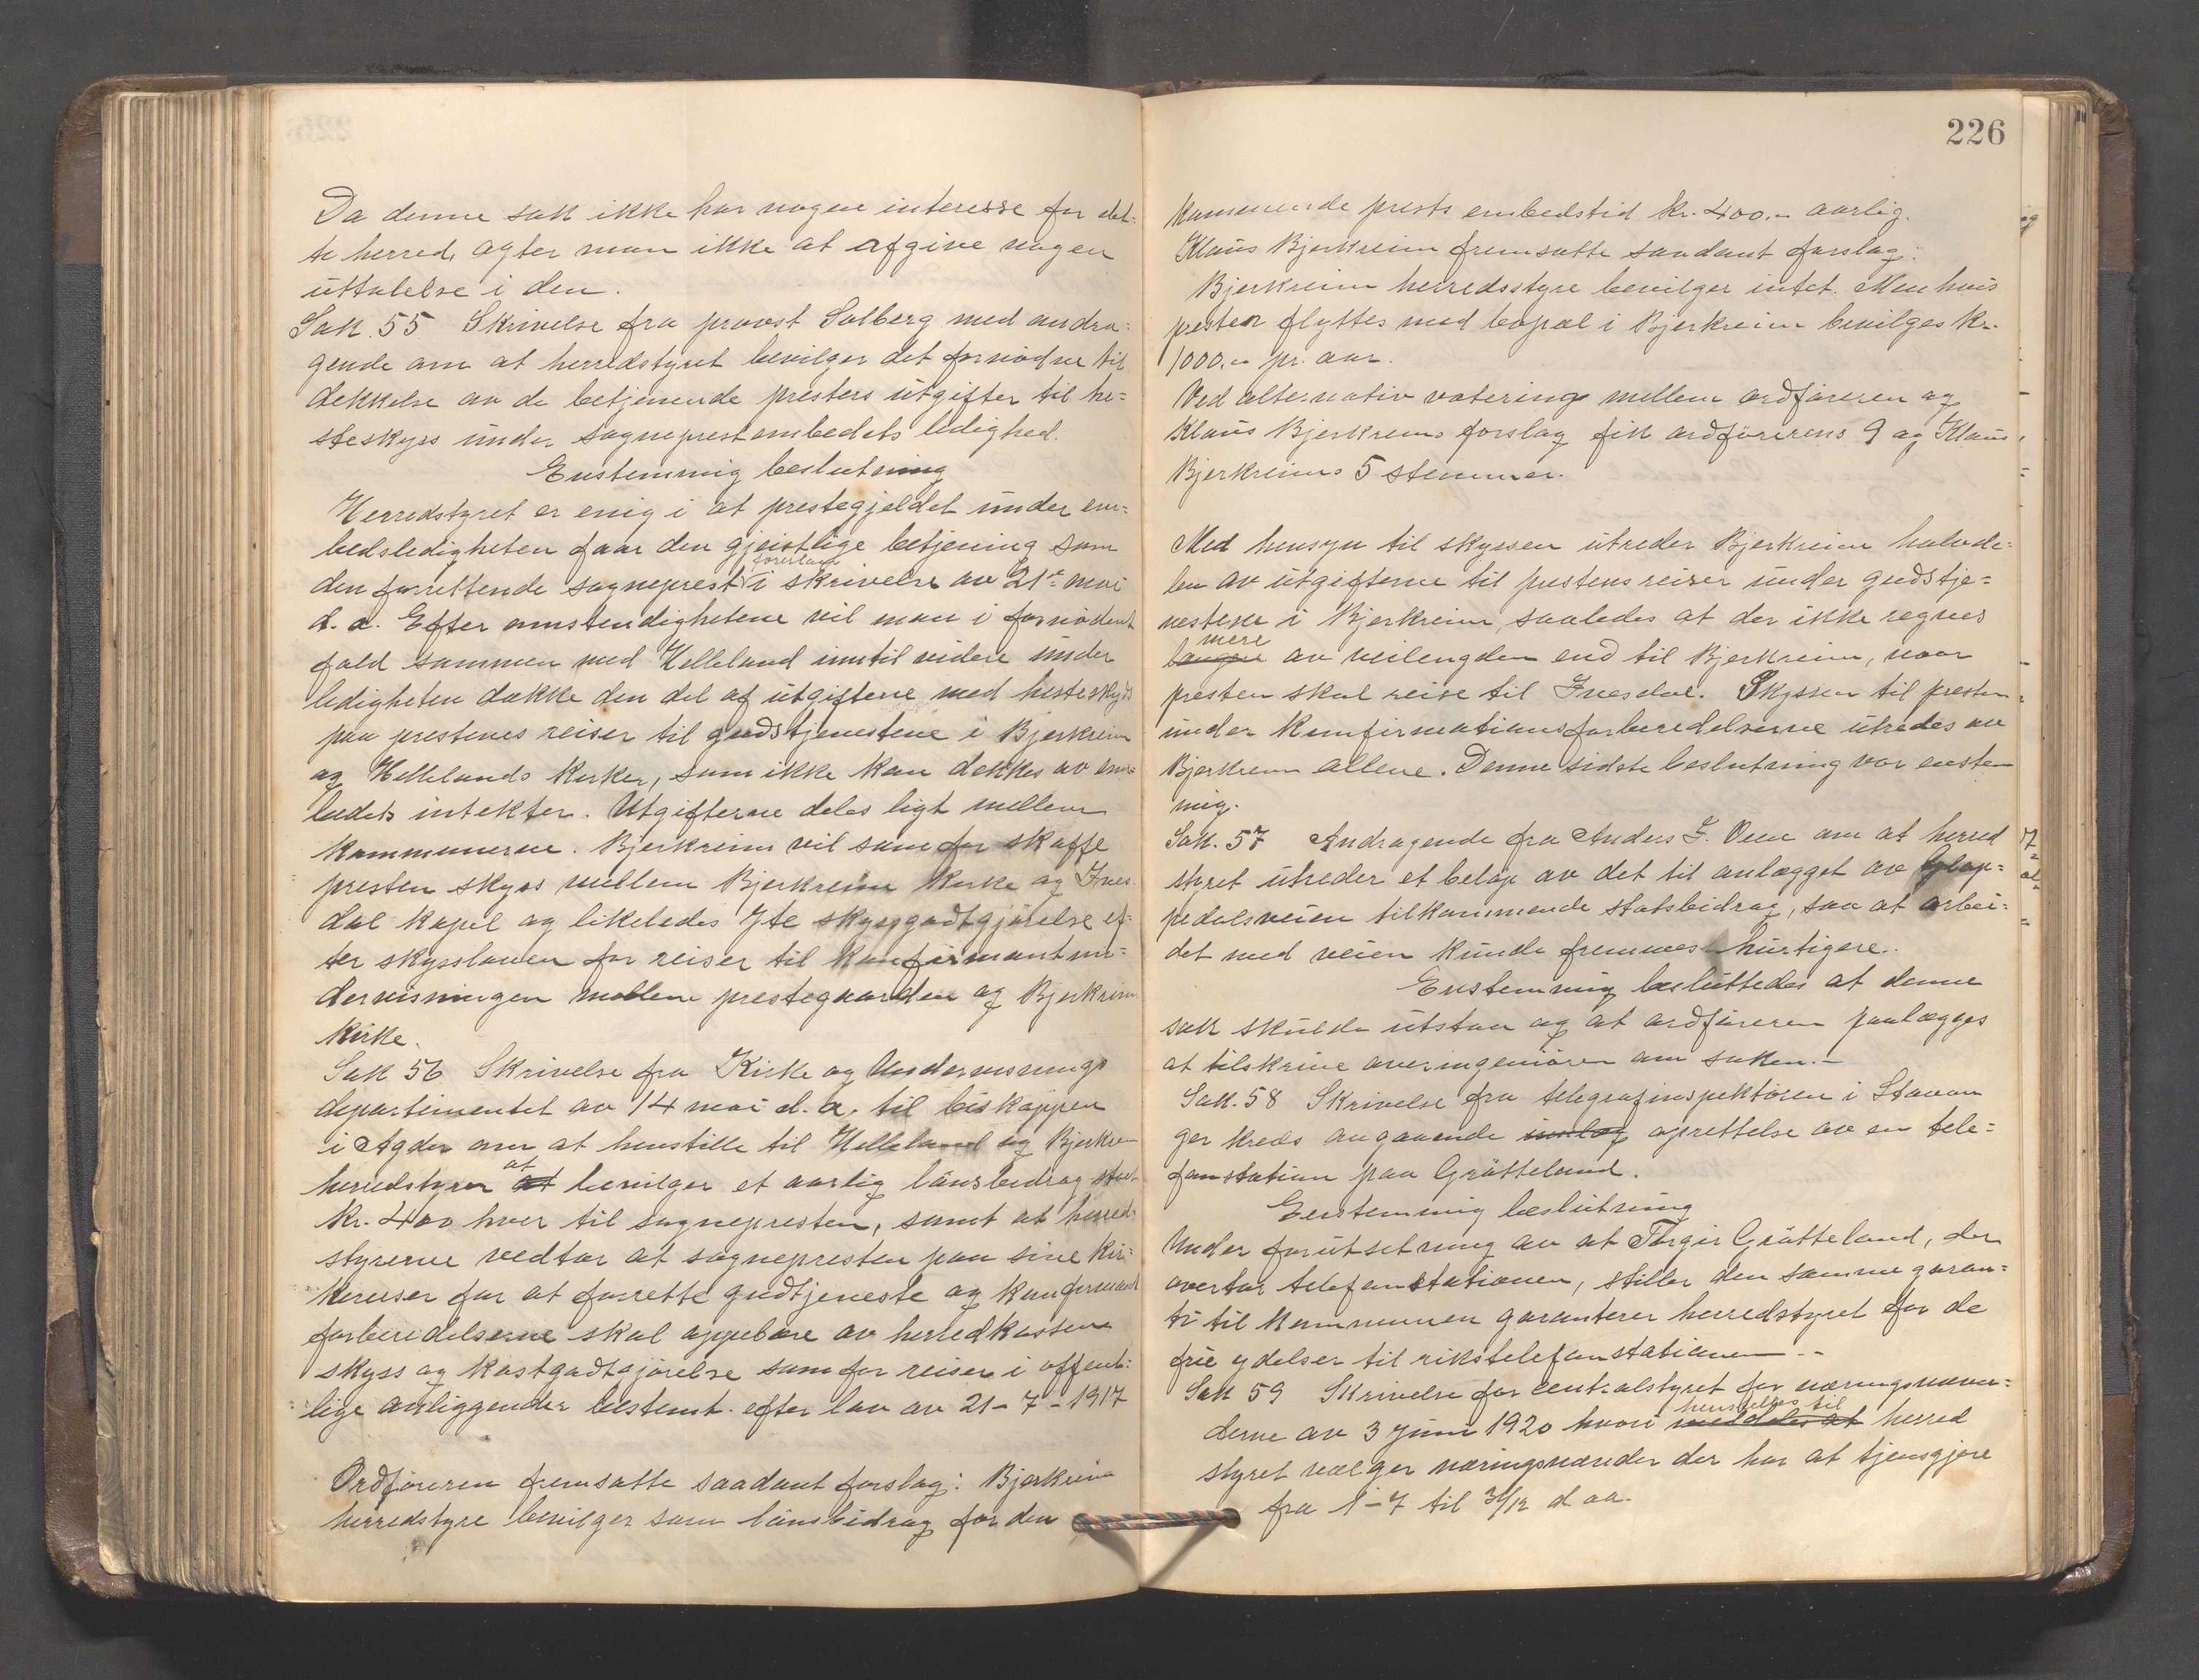 Da denne sak ikke har nogen interesse for det-
te herred, agter man ikke at afgive nogen
uttalelse i den.
Sak. 55 Skrivelse fra provst Solberg med andra-
gende om at herredstyret bevilger det fornødne til
dekkelse av de betjenende presters utgifter til he-
steskyss under sogneprestembedets ledighed.
Enstemmig beslutning
Herredstyret er enig i at prestegjeldet under em-
bedsledigheten faar den gjeistlige betjening som
foreslaar
den forrettende sogneprest i skrivelse av 21de mai
d. a. Efter omstendighetene vil man i fornødent
fald sammen med Helleland inntil videre under
ledigheten dække den del af utgifterne med hesteskyds
paa prestenes reiser til gudstjenestene i Bjerkreim
og Hellelands kirker, som ikke kan dekkes av em-
bedets intekter. Utgifterne deles ligt mellem
kommunerne. Bjerkreim vil som før skaffe
presten skyss mellem Bjerkreim kirke og Ives-
dal kapel og likeledes yte skyssgodtgjørelse ef-
ter skysslaven for reiser til konfirmantun-
dervisningen mellem prestegaarden og Bjerkreim
kirke.
Sak 56 Skrivelse fra Kirke og Undervisnings
departimentet av 14 mai d. a. til biskoppen
i Agder om at henstille til Helleland og Bjerkrem
at
herredstyrer at bevilger et aarlig lønsbidrag stort
kr. 400 hver til sognepresten, samt at herred-
styrerne vedtar at sognepresten paa sine kir-
kereiser for at forrette gudtjeneste og konfirmant
forberidelserne skal oppebære av herredkassene
skyss og kostgodtgjørelse som for reiser i offent-
lige anliggender bestemt efter lov av 21-7-1917
Ordføreren fremsatte saadant forslag: Bjerkreim
herredstyre bevilger som lønsbidrag for den
226
kommende prests embedstid kr. 400.- aarlig.
Klaus Bjerkreim fremsatte saadant forslag:
Bjerkreim herredsstyre bevilger intet. Men hvis
presten flyttes med bopæl i Bjerkreim bevilges kr.
1000.- pr. aar.
Ved alternativ votering mellem ordføreren og
Klaus Bjerkreims forslag fik ordførerens 9 og Klaus
Bjerkreims 5 stemmer.
Med hensyn til skyssen utreder Bjerkreim halvde-
len av utgifterne til prestens reiser under gudstje-
nestene i Bjerkreim, saaledes at der ikke regnes
mere
længre av veilengden end til Bjerkreim, naar
presten skal reise til Ivesdal. Skyssen til presten
under konfirmationsforberedelserne utredes av
Bjerkreim allene. Denne sidste beslutning var enstem
mig.
Sak. 57 Andragende fra Anders T. Veen om at herred
styret utreder et beløp av det til anlægget av Gløp-
pedalsveien tilkommende statsbidrag, saa at arbei-
det med veien kunde fremmes hurtigere.
Enstemmig besluttedes at denne
sak skulde utstaa og at ordføreren paalægges
at tilskrive overingeniøren om saken.-
Sak. 58 Skrivelse fra telegrafinspektøren i Stavan
ger kreds angaaende innlæg oprettelse av en tele-
fonstation paa Gråtteland.
Eenstemmig beslutning
Under forutsetning av at Torgir Gråtteland, der
overtar telefonstationen, stiller den samme garan-
ti til kommunen garanterer herredstyret for de
frie ydelser til rikstelefonstationen.-
Sak 59 Skrivelse for centralstyret for næringsnevn-
henstilles til
derne av 3 juni 1920 hvori meddeles at herred
styret vælger næringsnævnder der har at tjensgjøre
fra 1-7 til 31/12 d aa.